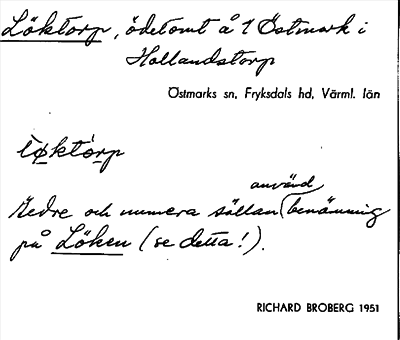 Löktorp, ödetomt å 1 Östmark i
Hollandstorp
Östmarks sn, Fryksdals hd, Värml. län
løktórp
Äldre och numera sällan använd benämning
på Löken (se detta!).
RICHARD BROBERG 1951